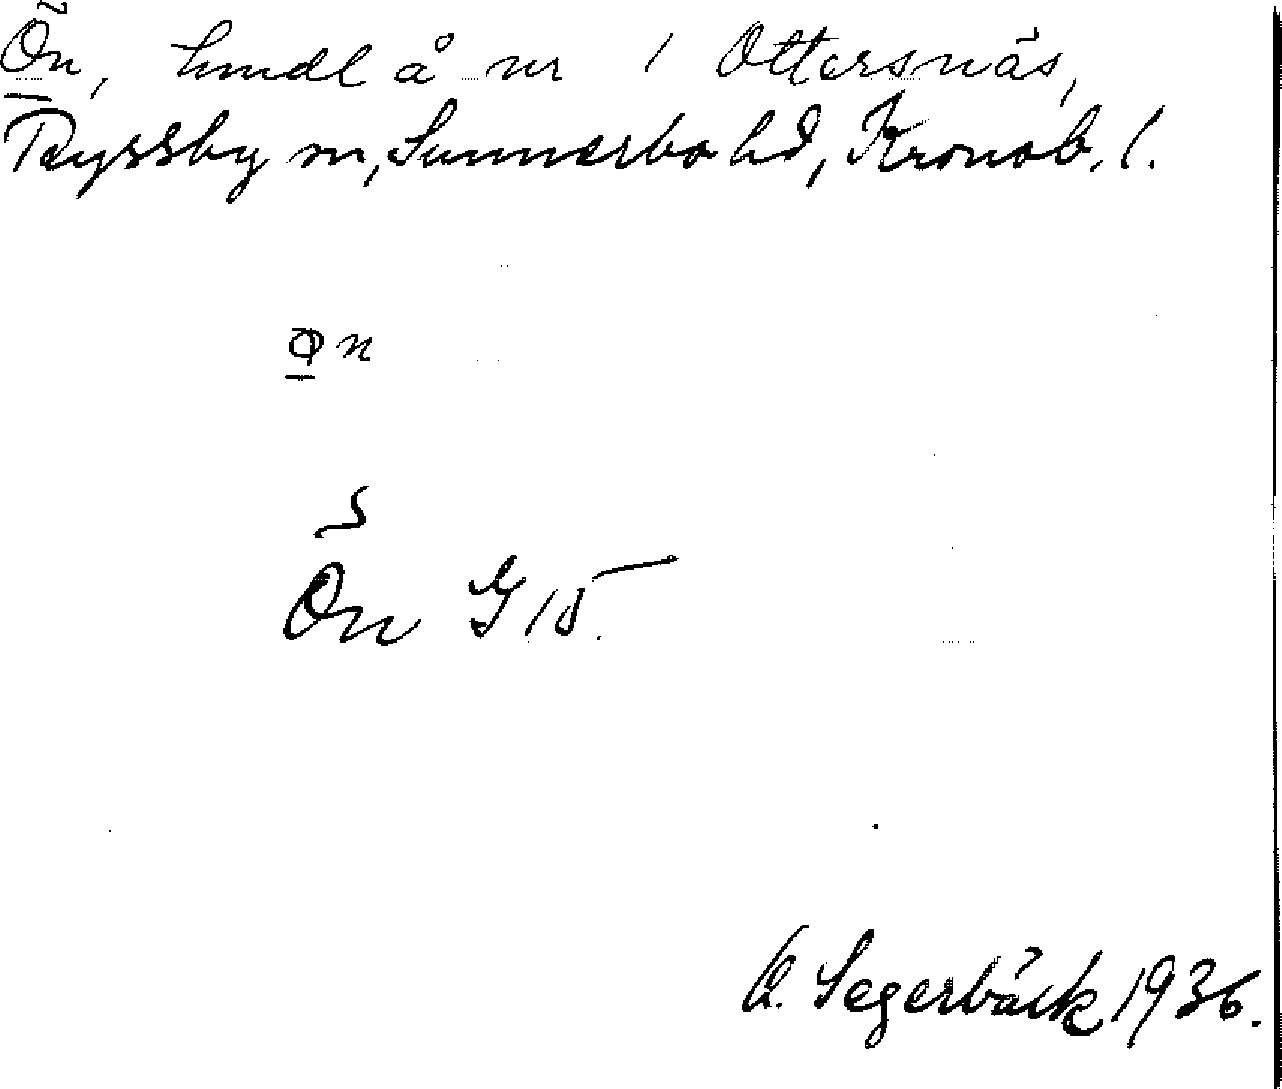 Ön, hmdl å nr 1 Ottersnäs,
Ryssby sn, Sunnerbo hd, Kronob. l.
ön
Ön G 15.
Segerbäck 1936.